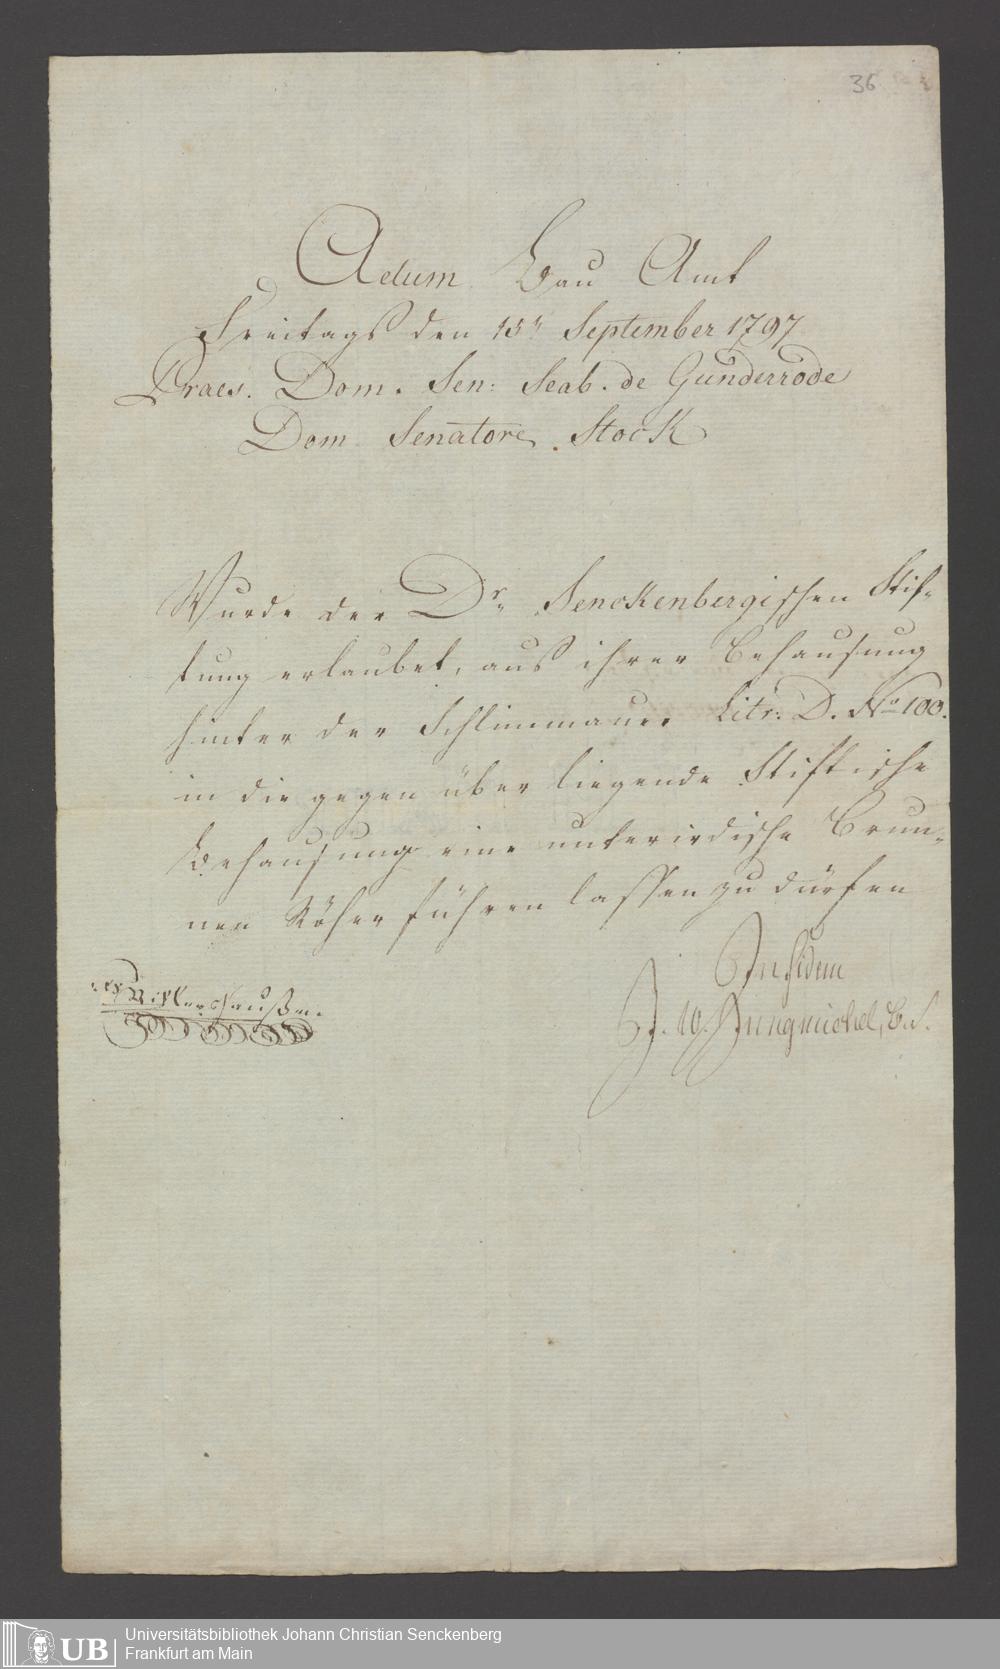 36
Actum Bau Amt
Freitags den 15ⁿ September 1797
Praes. Dom. Sen: Scab. de Günderrode
Dom Senatore Stock
Wurde der Dr. Senckenbergischen Stif-
tung erlaubet, aus ihrer Behausung
hinter der Schlimmauer Litr: D. No 100.
in die gegen über liegende Stiftische
Behausung eine unterirdische Brun-
nen Röher führen lassen zu dürfen
In fidem
J. W. Jungmichel, B.S.
UB Universitätsbibliothek Johann Christian Senckenberg
Frankfurt am Main